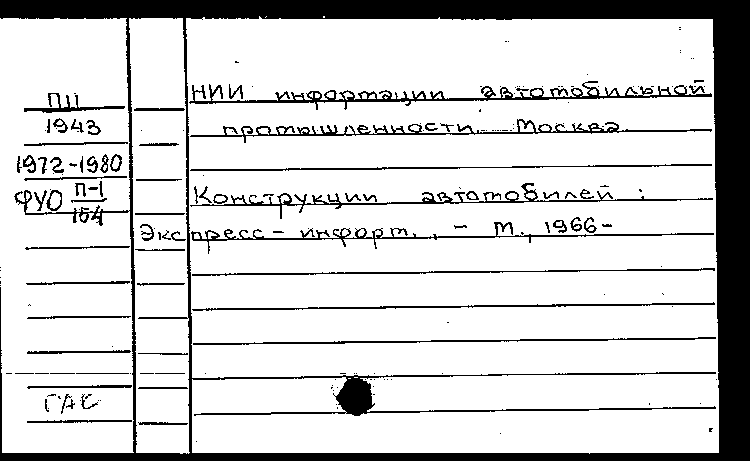 НИИ информации автомобильной
промышленности. Москва.
Конструкции автомобилей :
Экспресс - информ. , - М., 1966-
ПII
1943
1972-1980
ФУО П-1
154
ГАС